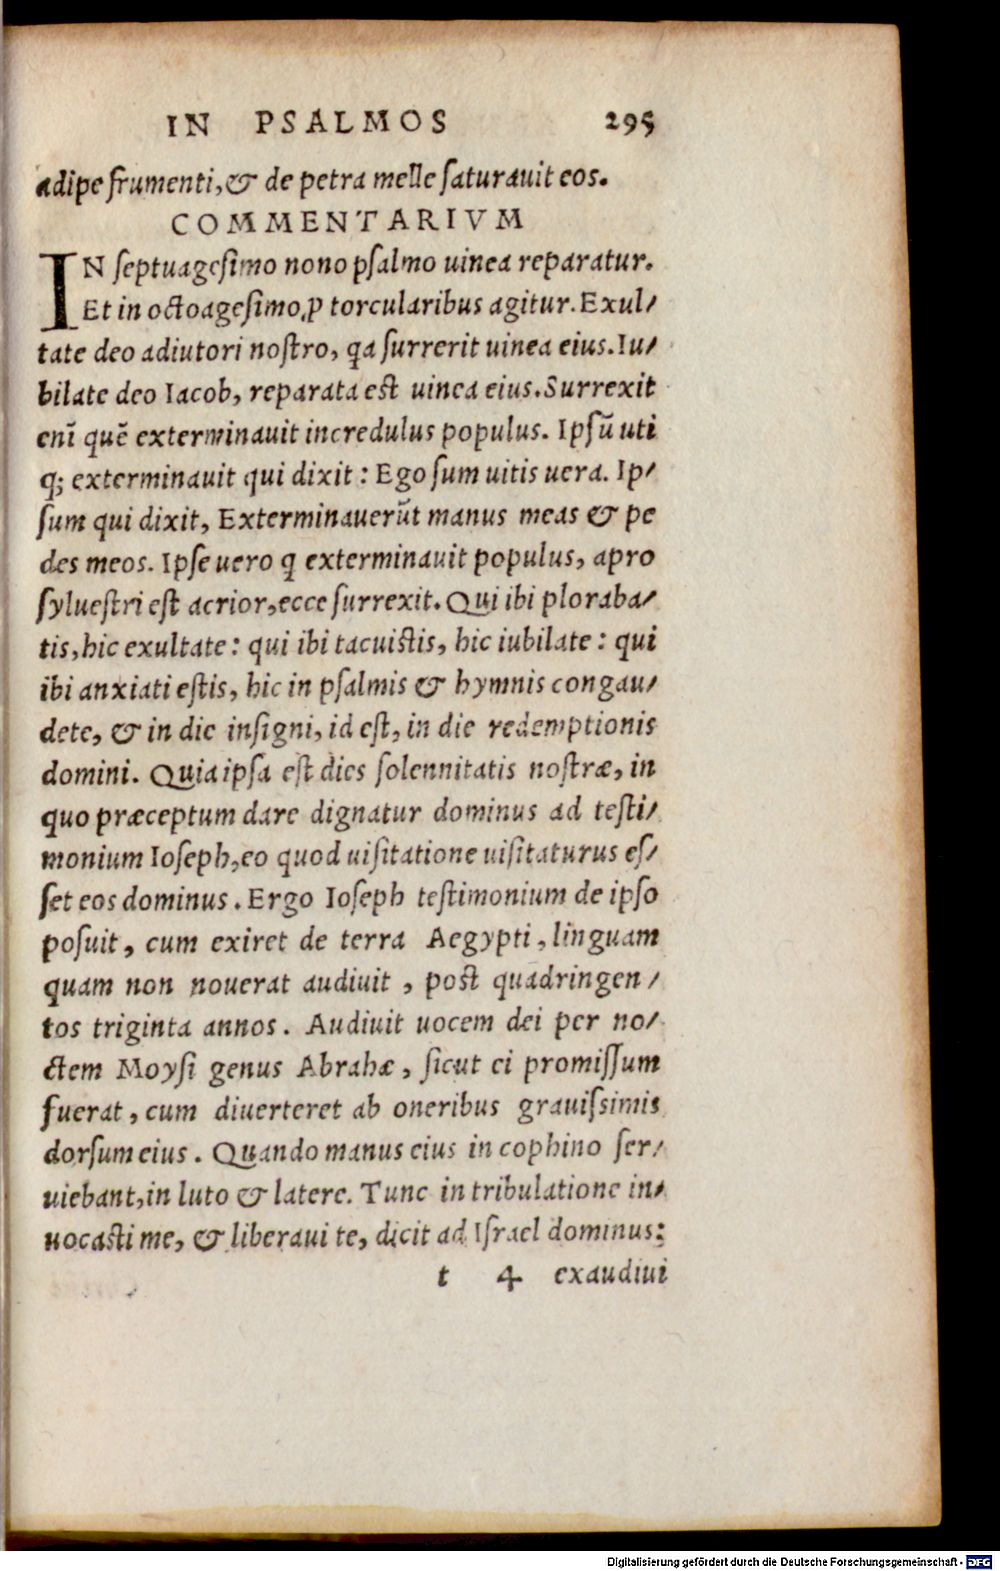 IN PSALMOS 295
adipe frumenti, & de petra melle saturauit eos.
COMMENTARIVM
IN septuagesimo nono psalmo uinea reparatur.
Et in octoagesimo, ꝓ torcularibus agitur. Exul/
tate deo adiutori nostro, qa surrerit uinea eius. Iu/
bilate deo Iacob, reparata est uinea eius. Surrexit
enī quē exterminauit incredulus populus. Ipsū uti
q; exterminauit qui dixit: Ego sum uitis uera. Ip/
sum qui dixit, Exterminauerūt manus meas & pe
des meos. Ipse uero q exterminauit populus, apro
syluestri est acrior, ecce surrexit. Qui ibi ploraba/
tis, hic exultate: qui ibi tacuistis, hic iubilate: qui
ibi anxiati estis, hic in psalmis & hymnis congau/
dete, & in die insigni, id est, in die redemptionis
domini. Quia ipsa est dies solennitatis nostræ, in
quo præceptum dare dignatur dominus ad testi/
monium Ioseph, eo quod uisitatione uisitaturus es/
set eos dominus. Ergo Ioseph testimonium de ipso
posuit, cum exiret de terra Aegypti, linguam
quam non nouerat audiuit, post quadringen/
tos triginta annos. Audiuit uocem dei per no/
ctem Moysi genus Abrahæ, sicut ei promissum
fuerat, cum diuerteret ab oneribus grauissimis
dorsum eius. Quando manus eius in cophino ser/
uiebant, in luto & latere. Tunc in tribulatione in/
uocasti me, & liberaui te, dicit ad Israel dominus:
t 4 exaudiui
Digitalisierung gefördert durch die Deutsche Forschungsgemeinschaft - DFG